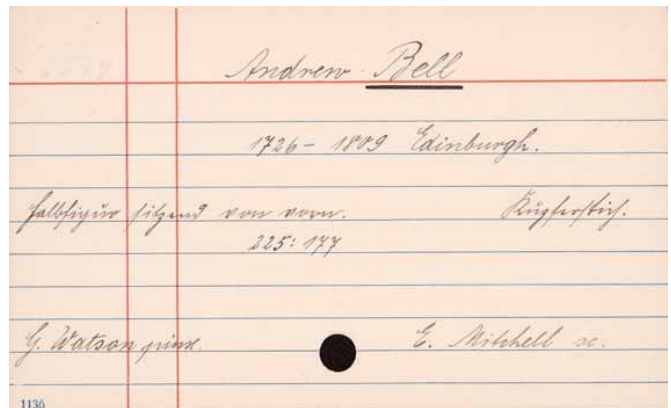 Andrew Bell
1726 - 1809 Edinburgh.
Halbfigur sitzend von vorn. Kupferstich.
225: 177
G. Watson pinx. E. Mitchell sc.
1136